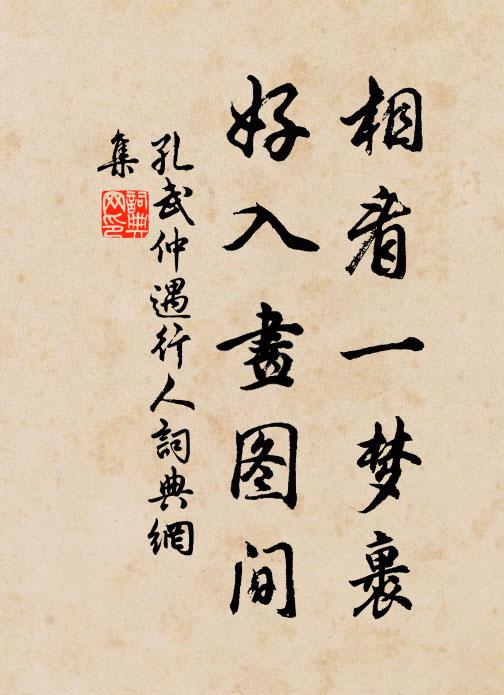 相看一梦裏
好入畫图间
孔武仲遇行人詞典網
集
詞典網印